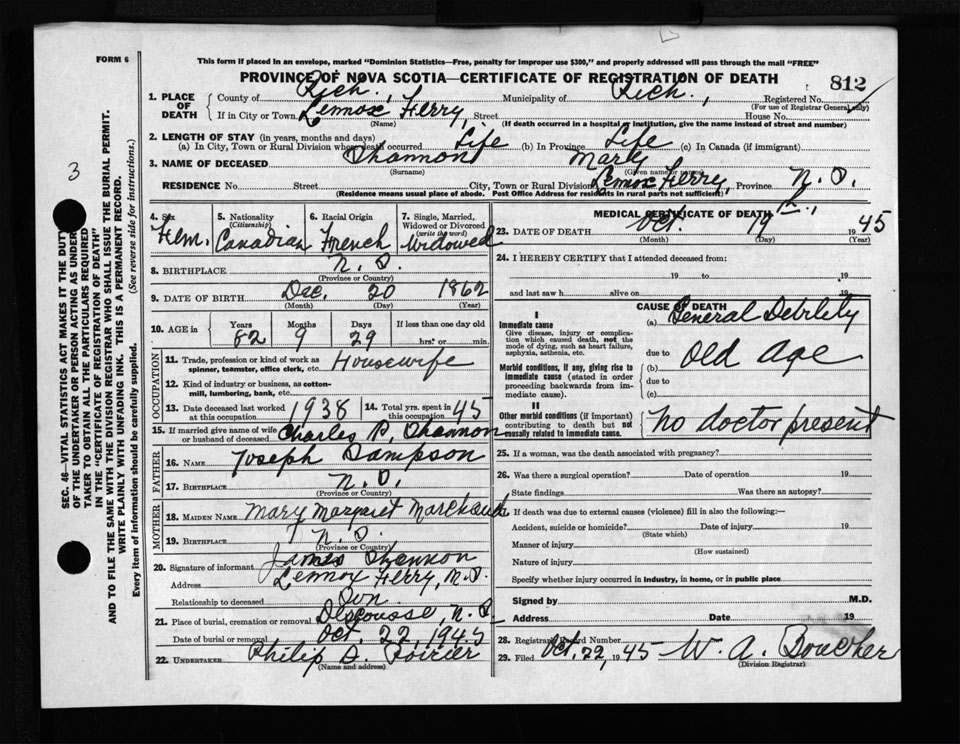 FORM 6
This form if placed in an envelope, marked "Dominion Statistics—Free, penalty for improper use $300," and properly addressed will pass through the mail "FREE"
PROVINCE OF NOVA SCOTIA—CERTIFICATE OF REGISTRATION OF DEATH
812
1. PLACE OF DEATH { County of Rich., Municipality of Rich., Registered No.
(For use of Registrar General only)
If in City or Town Lennox Ferry, Street House No.
(Name) (If death occurred in a hospital or institution, give the name instead of street and number)
2. LENGTH OF STAY (in years, months and days)
(a) In City, Town or Rural Division where death occurred Life (b) In Province Life (c) In Canada (if immigrant)
3. NAME OF DECEASED Shannon Mary
(Surname) (Given name or names)
RESIDENCE No. Street City, Town or Rural Division Lennox Ferry, Province N.S.
(Residence means usual place of abode. Post Office Address for residents in rural parts not sufficient)
4. Sex 5. Nationality 6. Racial Origin 7. Single, Married, Widowed or Divorced
(Citizenship) (write the word)
Fem. Canadian French Widowed
8. BIRTHPLACE N.S.
(Province or Country)
9. DATE OF BIRTH Dec. 20 1862
(Month) (Day) (Year)
10. AGE in Years Months Days If less than one day old
82 9 29 hrs. or min.
OCCUPATION
11. Trade, profession or kind of work as spinner, teamster, office clerk, etc. Housewife
12. Kind of industry or business, as cotton-mill, lumbering, bank, etc.
13. Date deceased last worked at this occupation 1938 14. Total yrs. spent in this occupation 45
15. If married give name of wife or husband of deceased Charles P. Shannon
FATHER
16. NAME Joseph Sampson
17. BIRTHPLACE N.S.
(Province or Country)
MOTHER
18. MAIDEN NAME Mary Margaret Marchand
19. BIRTHPLACE N.S.
(Province or Country)
20. Signature of informant James Shannon
Address Lennox Ferry, N.S.
Relationship to deceased Son
21. Place of burial, cremation or removal Descousse, N.S.
Date of burial or removal Oct. 22, 1945
22. UNDERTAKER Philip D. Poirier
(Name and address)
MEDICAL CERTIFICATE OF DEATH
23. DATE OF DEATH Oct. 19th, 1945
(Month) (Day) (Year)
24. I HEREBY CERTIFY that I attended deceased from:
19 to 19
and last saw h alive on 19
CAUSE OF DEATH
I
Immediate cause (a) General Debility
Give disease, injury or complication which caused death, not the mode of dying, such as heart failure, asphyxia, asthenia, etc.
due to
(b) Old Age
Morbid conditions, if any, giving rise to immediate cause (stated in order proceeding backwards from immediate cause).
due to
(c)
II
Other morbid conditions (if important) contributing to death but not causally related to immediate cause.
No doctor present
25. If a woman, was the death associated with pregnancy?
26. Was there a surgical operation? Date of operation 19
State findings Was there an autopsy?
27. If death was due to external causes (violence) fill in also the following:
Accident, suicide or homicide? Date of injury 19
(State which)
Manner of injury
(How sustained)
Nature of injury
Specify whether injury occurred in industry, in home, or in public place
Signed by M.D.
Address Date 19
28. Registrar's Record Number
29. Filed Oct. 22, 1945 W. A. Boucher
(Division Registrar)
3
SEC. 46—VITAL STATISTICS ACT MAKES IT THE DUTY
OF THE UNDERTAKER OR PERSON ACTING AS UNDERTAKER TO OBTAIN ALL THE PARTICULARS REQUIRED
IN THE "CERTIFICATE OF REGISTRATION OF DEATH"
AND TO FILE THE SAME WITH THE DIVISION REGISTRAR WHO SHALL ISSUE THE BURIAL PERMIT.
WRITE PLAINLY WITH UNFADING INK. THIS IS A PERMANENT RECORD.
Every item of information should be carefully supplied. (See reverse side for instructions.)